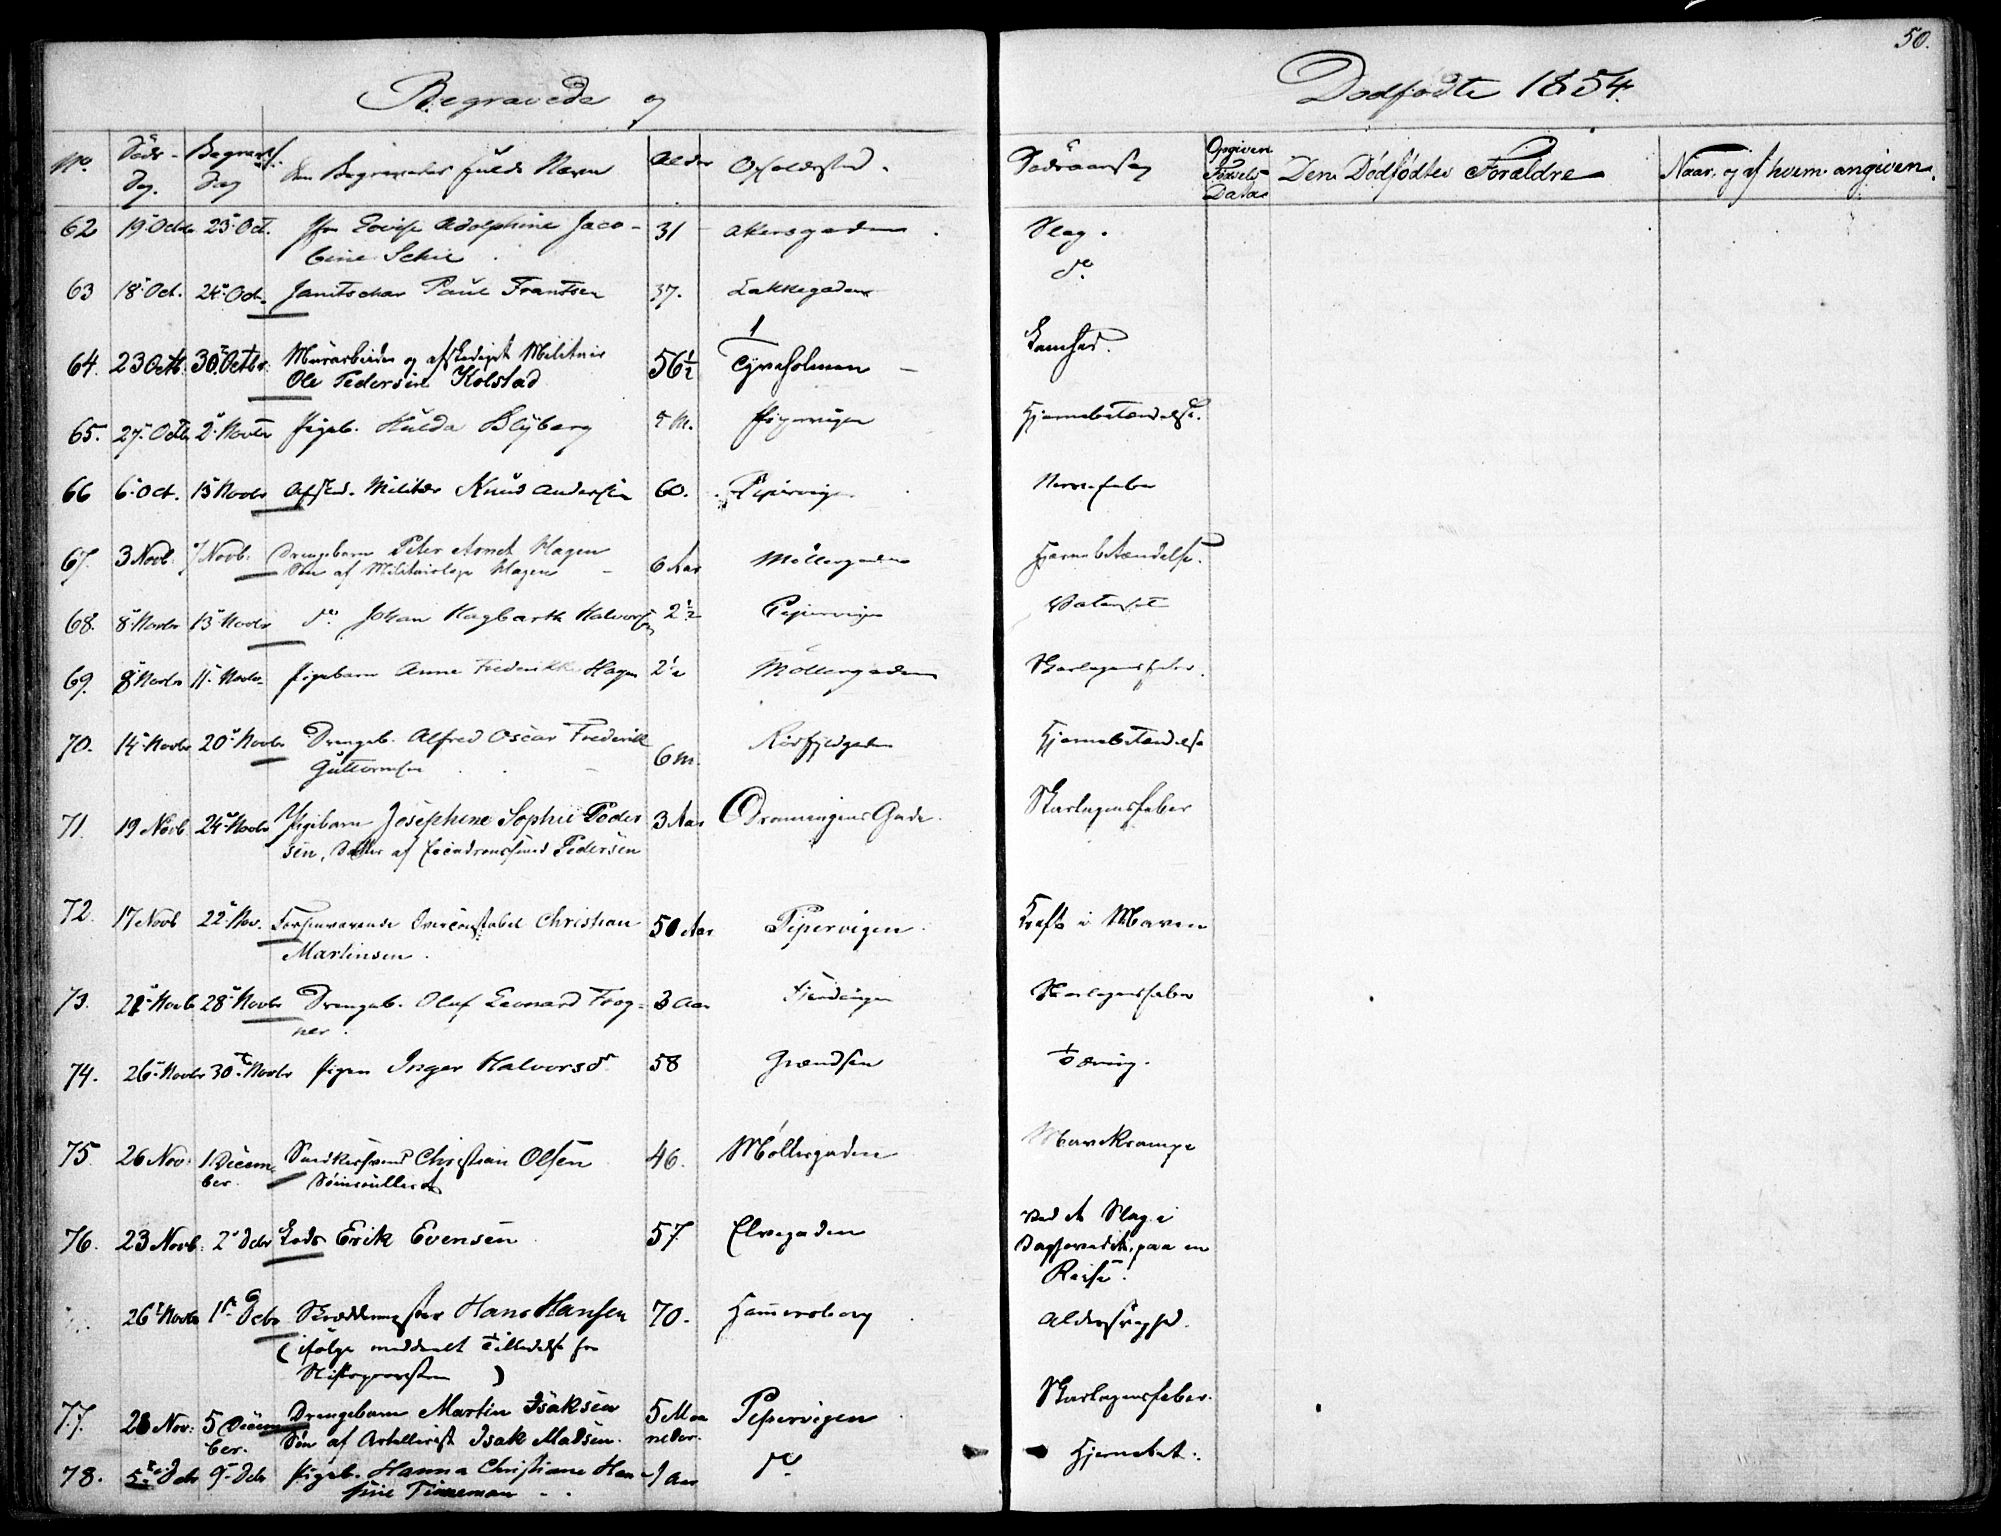 50.
Begravede og Dødfødte 1854.
No. Døds-Dag. Begravels. Dag Den Begravedes fulde Navn Alder Opholdssted. Dødsaarsag Opgiven Fødsels Datae Den Dødfødtes Forældre Naar og af hvem angiven.
62 19 Octbr 25 Oct. Jfr Lovise Adolphine Jaco- 31 Akersgaden Slag.
bine Schie
63 18 Oct. 24 Oct. Janitschar Paul Frantsen 37. Lakkegaden do
64. 23 Octb. 30 Octbr. Murarbeider og afskediget Militair 56½ Tyveholmen
Ole Pedersen Kolstad
65. 27 Octb 2 Novbr Pigeb. Hulda Blyberg 5 M. Pipervigen Hjernebetændelse.
66 6 Oct. 15 Novbr Afsked. Militær Knud Andersen 60. Pipervigen Nervefeber
67. 3 Novb. 7 Novb. Drengebarn Peter Arndt Hagen 6 Aar Møllergaden Hjernebetændelse.
Søn af Militairlæge Hagen
68. 8 Novbr 13 Novbr do Johan Hagbarth Halvorsen 2½ Pipervigen Vatersot
69. 8 Novbr 11 Novbr Pigebarn Anne Frederikke Hagen 2½ Møllergaden Skarlagensfeber.
70. 14 Novbr 20 Novbr Drengeb. Alfred Oscar Frederik 6 m. Rødfyldgaden Hjernebetændelse
Guttormsen
71. 19 Novb 24 Novbr Pigebarn Josephine Sophie Peder 3 Aar Dronningens Gade. Skarlagensfeber
sen, Datter af Pedersen
72. 17 Novb 22 Nov. Forhenværende Overconstabel Christian 50 Aar Pipervigen Kræft i Maven
Martinsen.
73. 21 Novb 28 Novbr Drengeb. Oluf Leonard Frog- 3 Aar Fjerdingen Skarlagensfeber
ner.
74. 26 Novbr 30 Novbr Pigen Inger Halvorsd. 58 Grændsen Tæring.
75. 26 Nov. 1 Decem- Christian Olsen 46. Møllergaden Mavekrampe
ber.
76. 23 Novb. 2 Decbr Erik Evensen 57 Elvegaden Ved et Slag i
paa en
Reise.
26 Novbr 1 Decbr Skræddermester Hans Hansen 70. Hammersborg Alderssvaghed.
(ifølge meddeelt Tilladelse fra
Stiftsprovsten)
77. 28 Nov. 5 Decem- Drengebarn Martin Isaksen 5 Maa Pipervigen Skarlagensfeber.
ber. Søn af Artillerist Isak Madsen. neder.
78. 5 Decbr 9 Decbr Pigeb. Hanna Christiane Han- 1 Aar do Hjernebet.
sine Tinneman